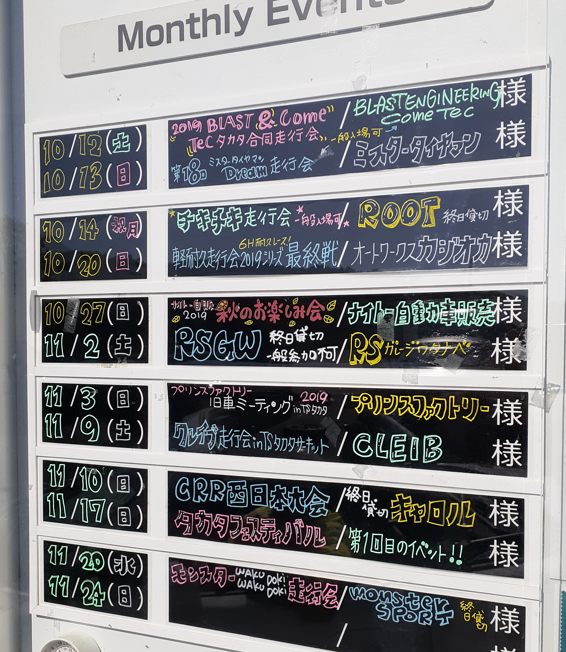 Monthly Events
10/12(土) 2019 BLAST & Come TeC タカタ合同走行会 一般入場可 / BLASTENGINEERING Come TeC 様
10/13(日) 第18回 ミスタータイヤマン Dream 走行会 / ミスタータイヤマン 様
10/14(祝月) チキチキ走行会 一般入場可 / ROOT 終日貸切 様
10/20(日) 軽耐久走行会2019シリズ 6H耐久レース! 最終戦 / オートワークスカジオカ 様
10/27(日) ナイトー自動車 2019 秋のお楽しみ会 / ナイトー自動車販売 様
11/2(土) RSGW 終日貸切 一般参加不可 / RSガレージワタナベ 様
11/3(日) プリンスファクトリー 旧車ミーティング 2019 inTSタカタ / プリンスファクトリー 様
11/9(土) クレイブ走行会inTSタカタサーキット / CLEIB 様
11/10(日) CRR西日本大会 / 終日貸切 キャロル 様
11/17(日) タカタフェスティバル / 第1回目のイベント!! 様
11/20(水) モンスターWAKU DOKI WAKU DOKI 走行会 / monster SPORT 終日貸切 様
11/24(日) / 様